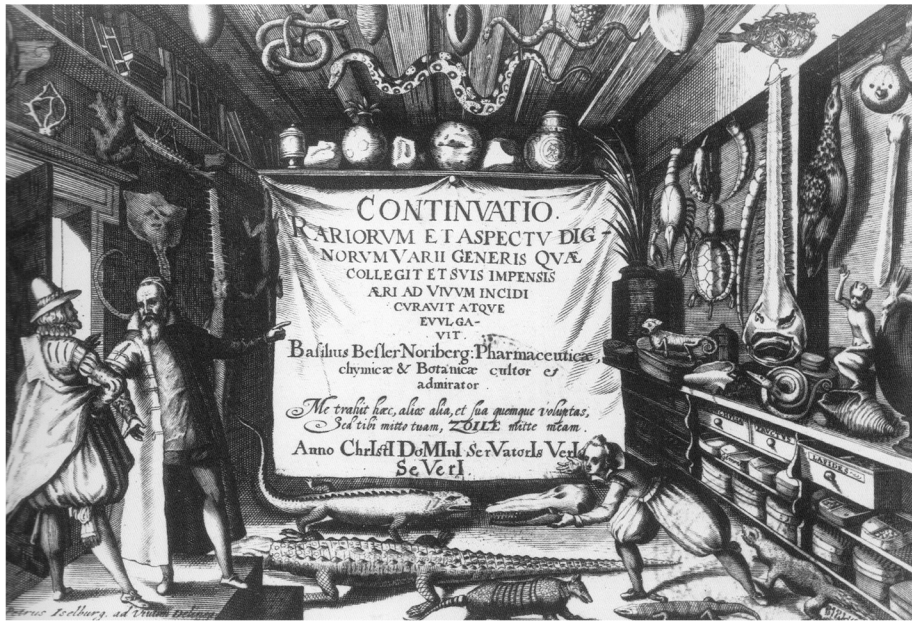 CONTINVATIO.
RARIORVM ET ASPECTV DIG-
NORVM VARII GENERIS QVÆ
COLLEGIT ET SVIS IMPENSIS
ÆRI AD VIVVM INCIDI
CVRAVIT ATQVE
EVVLGA-
VIT.
Basilius Besler Noriberg: Pharmaceuticæ,
chymicæ & Botanicæ cultor et
admirator.
Me trahit hæc, alios alia, et sua quemque voluptas,
Sed tibi mitto tuam, ZOILE mitte meam.
Anno ChrIstI DoMInI SerVatorIs VerI
SeVerI.
LAPIDES
Petrus Iselburg. ad Vivum Delin